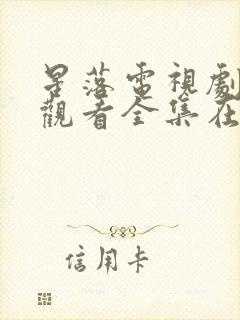 星落電視劇
觀看全集在
信用卡